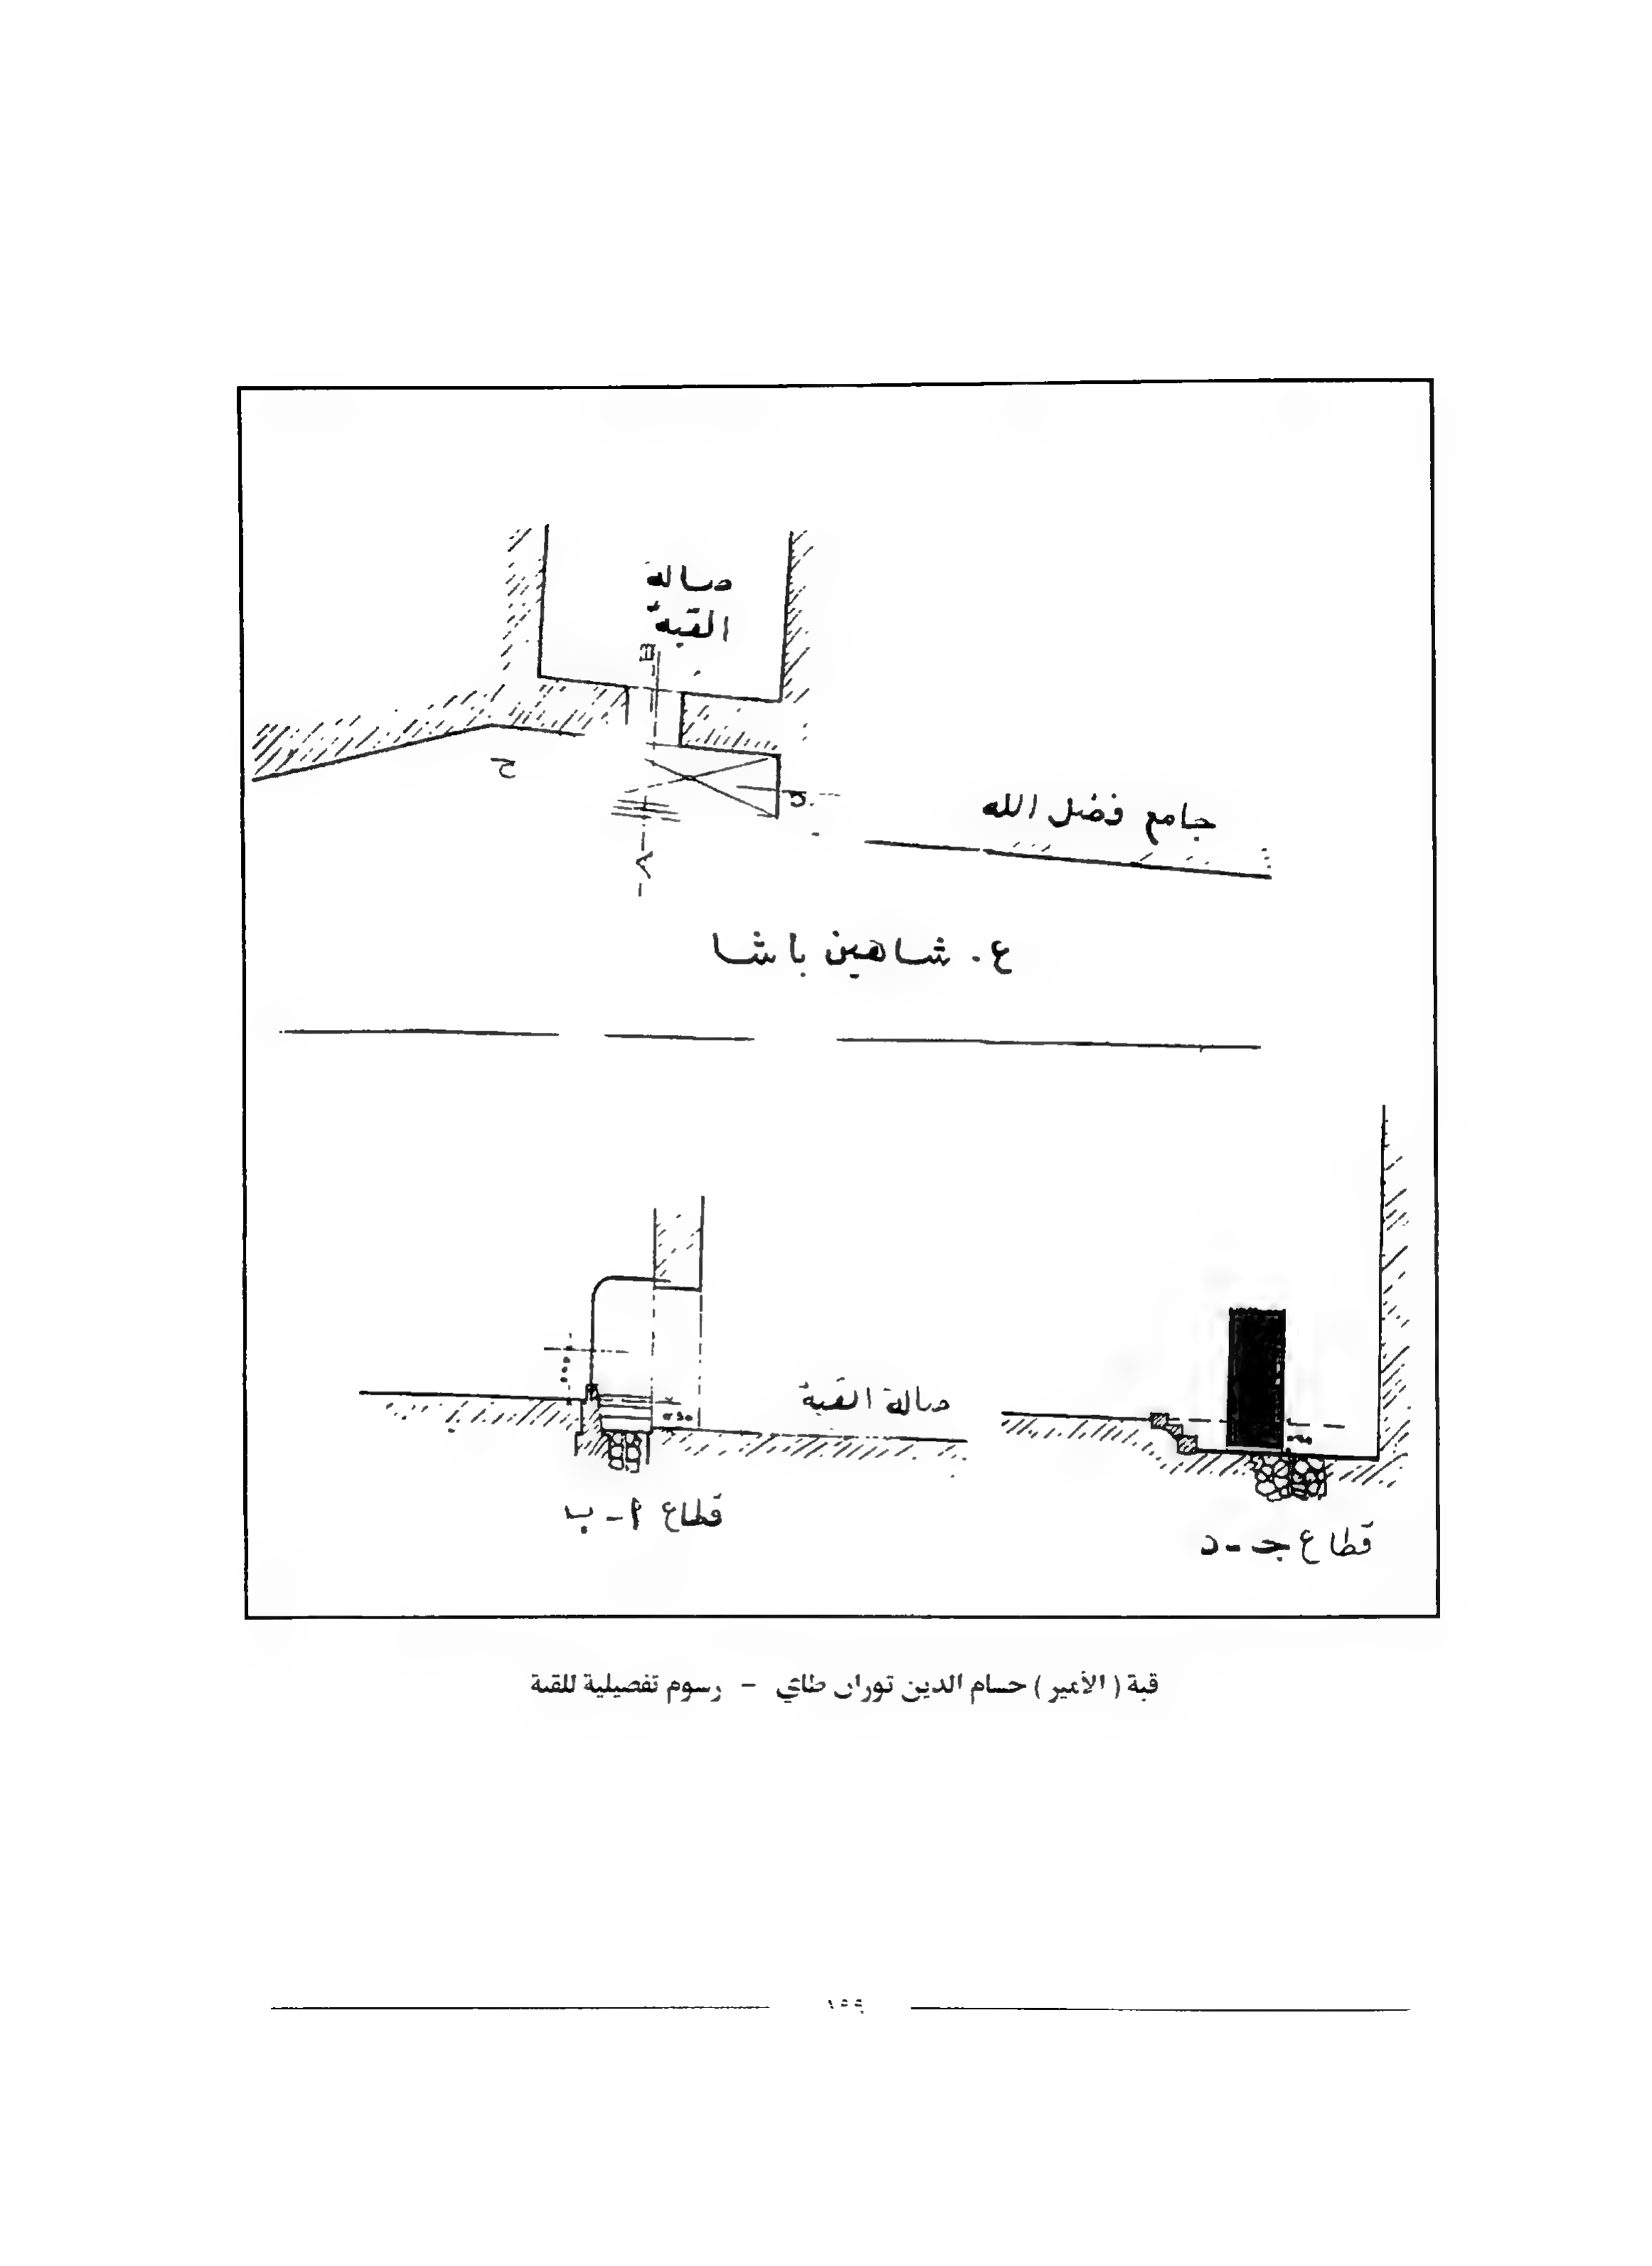 صالة
القبة
ح
جامع فضل الله
ع. شاهين باشا
صالة القبة
قطاع ا - ب
قطاع جـ - د
قبة ( الأمير ) حسام الدين توران طاي - رسوم تفصيلية للقبة